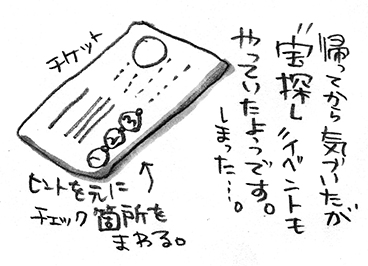 帰ってから気づいたが
"宝探し"イベントも
やっていたようです。
しまった…。
チケット
①②③
ヒントを元に
チェック箇所を
まわる。